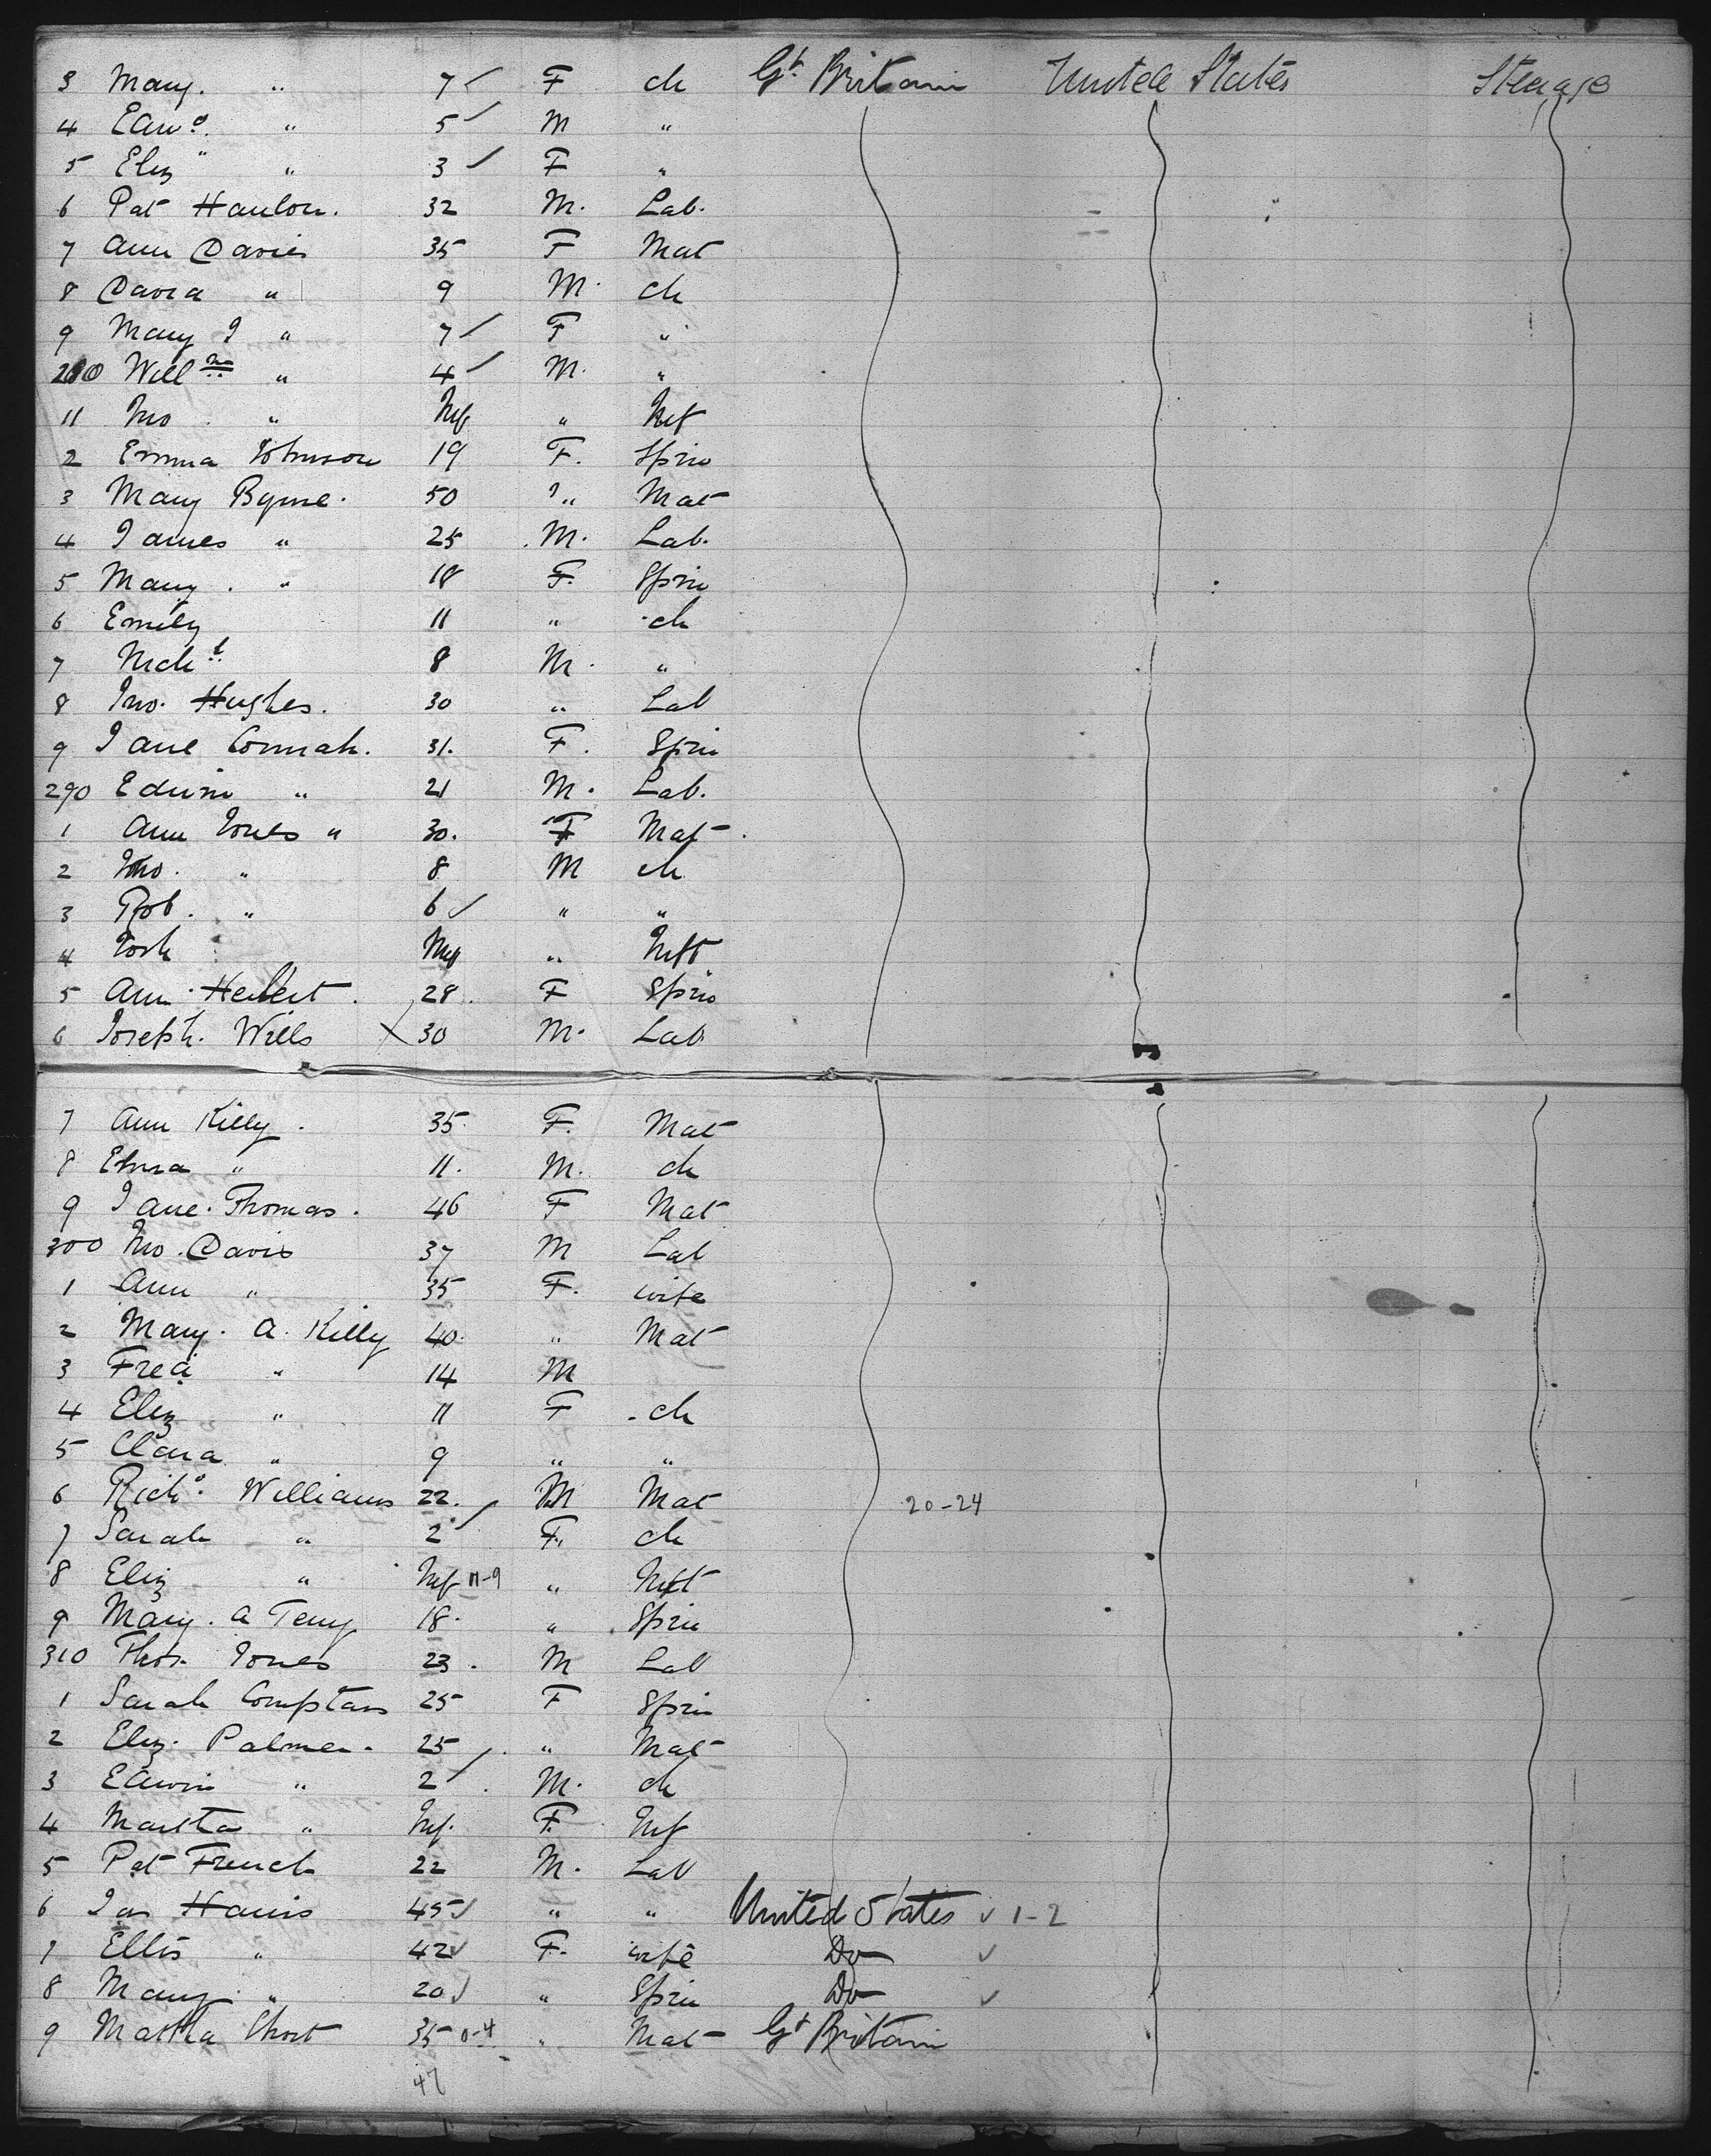 3 Mary. " 7 ✓ F ch Gt. Britain United States Steerage
4 Edwd. " 5 ✓ M "
5 Eliz " 3 ✓ F "
6 Pat Hanlon. 32 M. Lab.
7 Ann Davies 35 F Mat
8 David " 9 M. ch
9 Mary J " 7 ✓ F "
280 Willm " 4 ✓ M. "
11 Jno. " Inf " Inft
2 Emma Johnson 19 F. Spin
3 Mary Byrne. 50 " Mat
4 James " 25 M. Lab.
5 Mary. " 18 F. Spin
6 Emily 11 " ch
7 Michl 8 M. "
8 Jno. Hughes. 30 " Lab
9 Jane Connah. 31. F. Spin
290 Edwin " 21 M. Lab.
1 Ann Jones " 30. F Mat.
2 Jno. " 8 M ch
3 Rob. " 6 ✓ " "
4 Josh Inf " Inft
5 Ann Herbert. 28. F Spin
6 Joseph. Wills X 30 M. Lab
7 Ann Killy. 35. F. Mat
8 " 11. M. ch
9 Jane. Thomas. 46 F Mat
300 Jno. Davis 37 M Lab
1 Ann " 35 F. wife
2 Mary. A. Killy 40. " Mat
3 Fred " 14 M
4 Eliz " 11 F ch
5 Clara " 9 " "
6 Richd. Williams 22. M Mat 20-24
7 Sarah " 2 ✓ F. ch
8 Eliz " Inf 11-9 " Inft
9 Mary. A Terry 18. " Spin
310 Thos. Jones 23. M Lab
1 Sarah Compton 25 F Spin
2 Eliz. Palmer. 25 " Mat
3 Edwin " 2 ✓ M. ch
4 Martha " Inf. F. Inf
5 Pat French 22 M. Lab
6 Jas Harris 45 ✓ " " United States ✓ 1-2
7 Ellis " 42 ✓ F. wife Do ✓
8 Mary " 20 ✓ " Spin Do ✓
9 Martha Short 35 0-4 " Mat Gt Britain
47